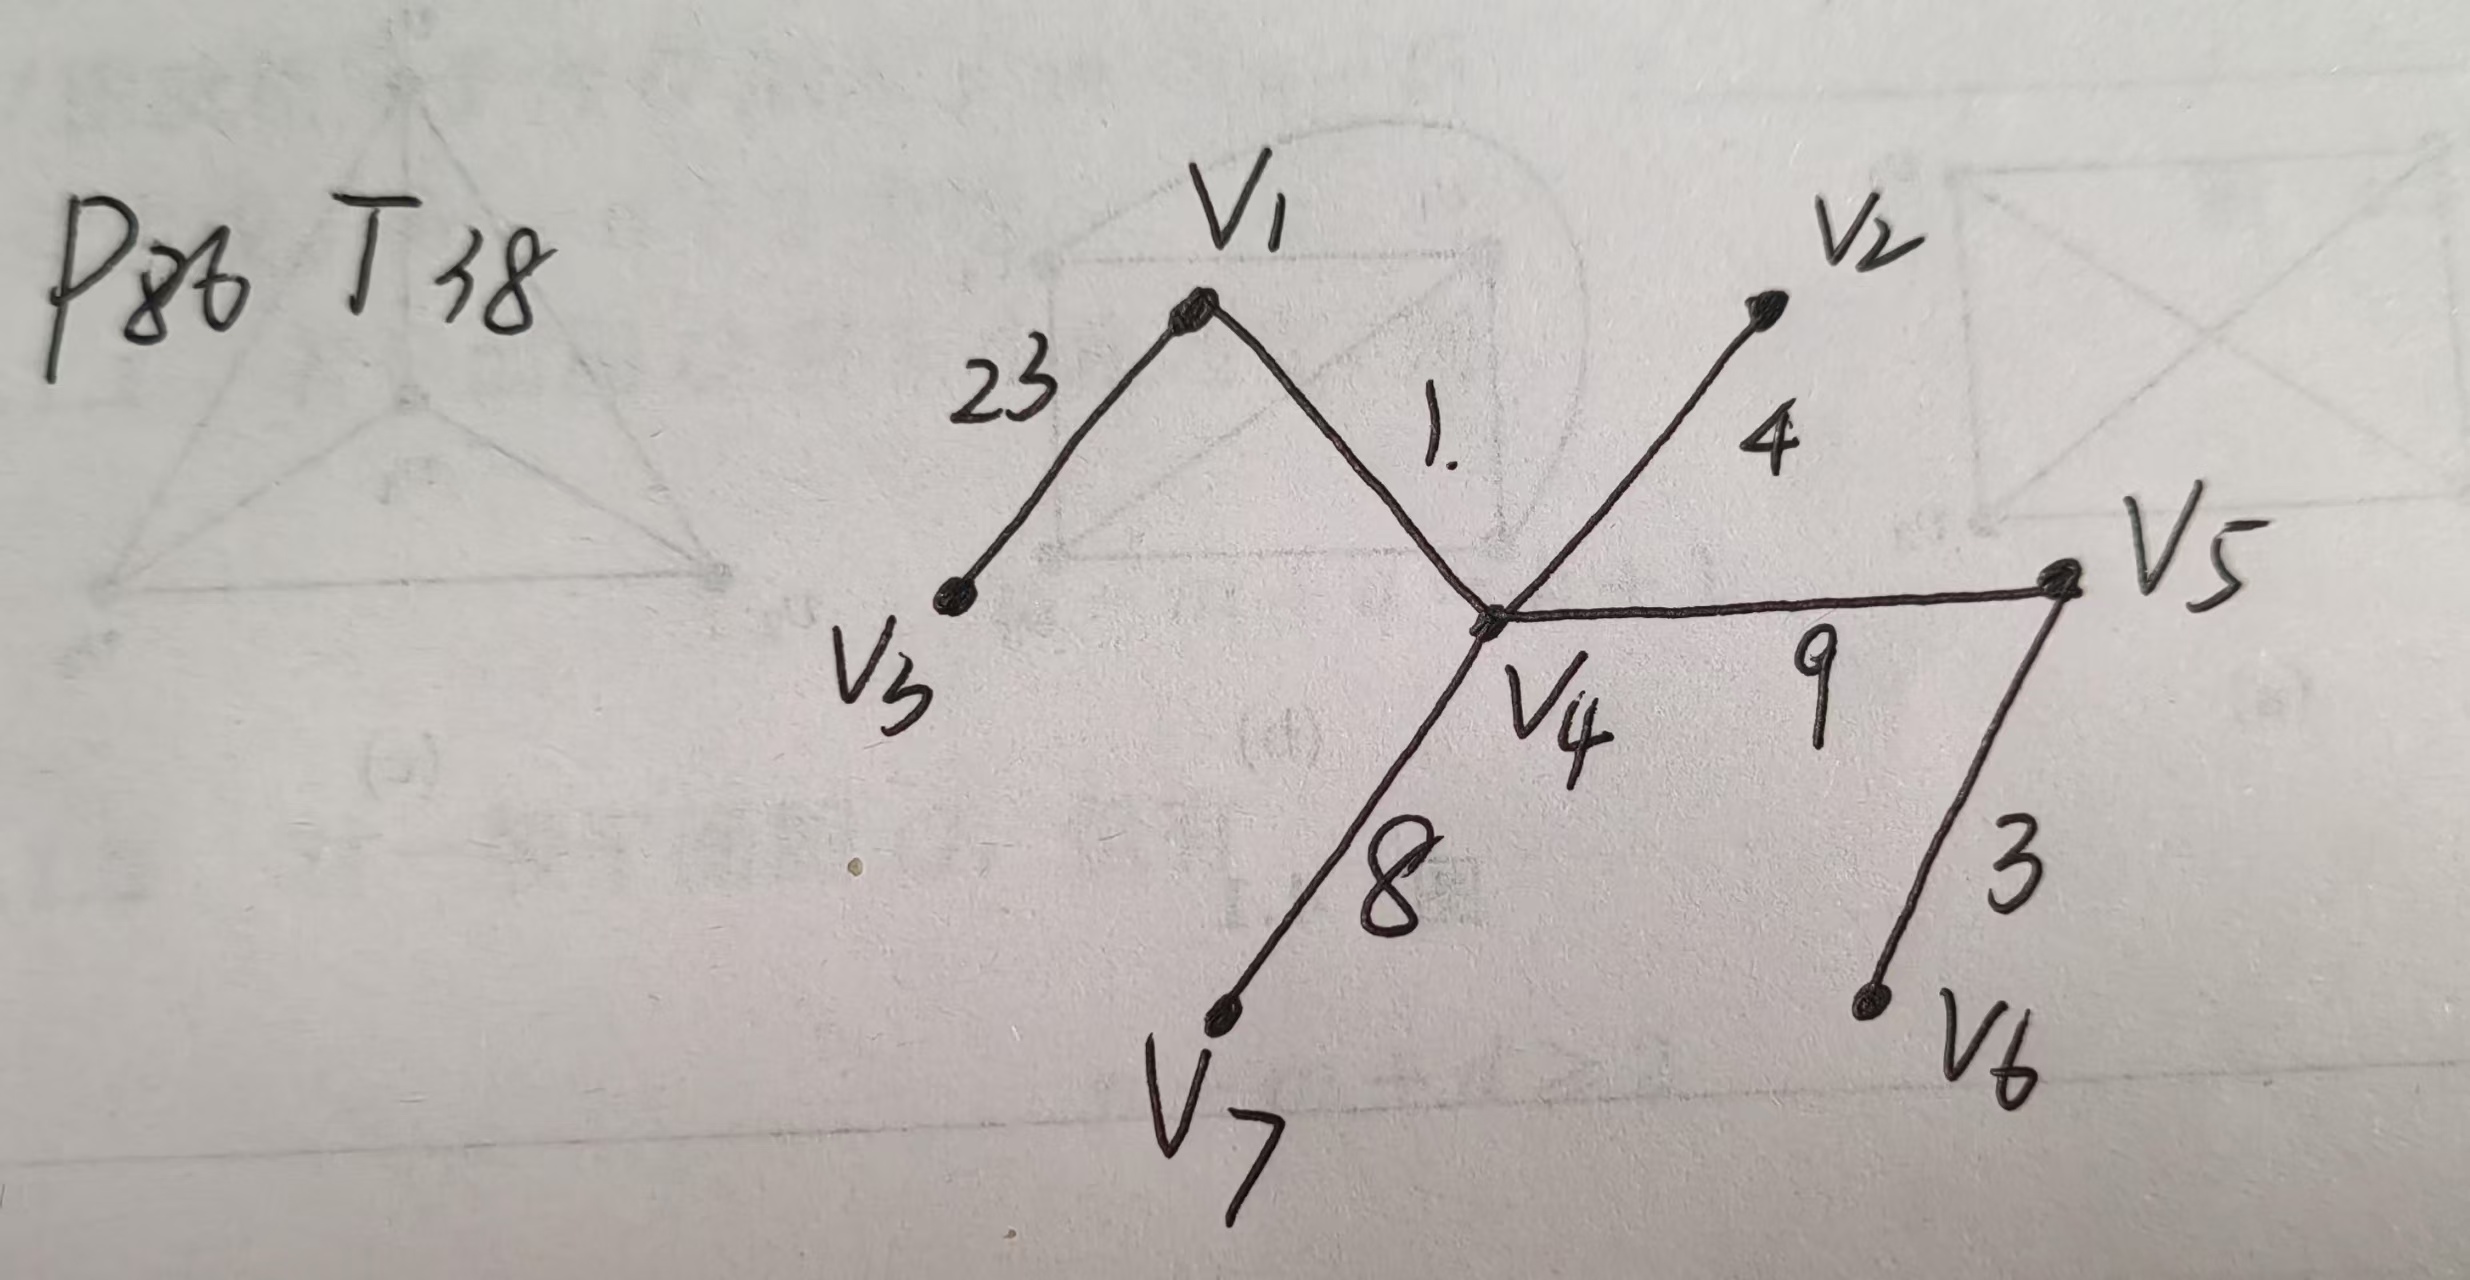 P86 T38
V1
V2
23
1.
4
V5
V3
V4
9
8
3
V6
V7